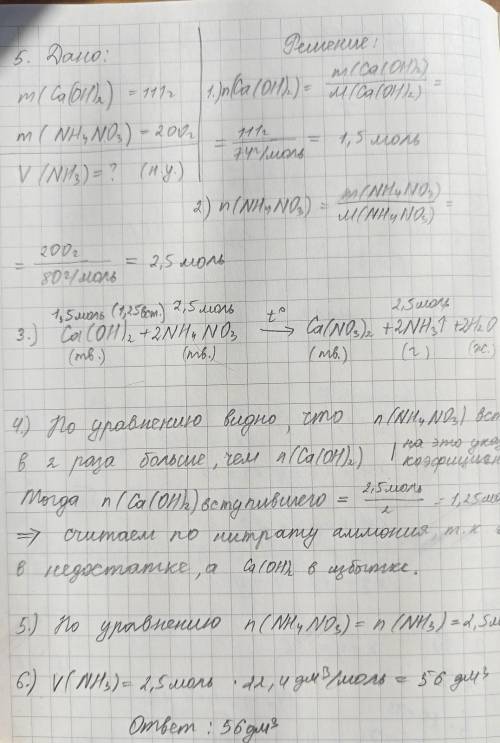 5. Дано:
Решение:
m(Ca(OH)₂) = 111г
1.) n(Ca(OH)₂) = m(Ca(OH)₂) / M(Ca(OH)₂) =
m(NH₄NO₃) = 200г
= 111г / 74г/моль = 1,5 моль
V(NH₃) = ? (н.у.)
2) n(NH₄NO₃) = m(NH₄NO₃) / M(NH₄NO₃) =
= 200г / 80г/моль = 2,5 моль
1,5 моль (1,25 вст.) 2,5 моль 2,5 моль
3.) Ca(OH)₂ + 2NH₄NO₃ t° → Ca(NO₃)₂ + 2NH₃↑ + 2H₂O
(тв.) (тв.) (тв.) (г) (ж.)
4.) По уравнению видно, что n(NH₄NO₃) вст
в 2 раза больше, чем n(Ca(OH)₂) на это ука
коэфициен
Тогда n(Ca(OH)₂) вступившего = 2,5 моль / 2 = 1,25 мо
⇒ считаем по нитрату аммония, т.к
в недостатке, а Ca(OH)₂ в избытке.
5.) По уравнению n(NH₄NO₃) = n(NH₃) = 2,5 м
6.) V(NH₃) = 2,5 моль · 22,4 дм³/моль = 56 дм³
Ответ: 56 дм³